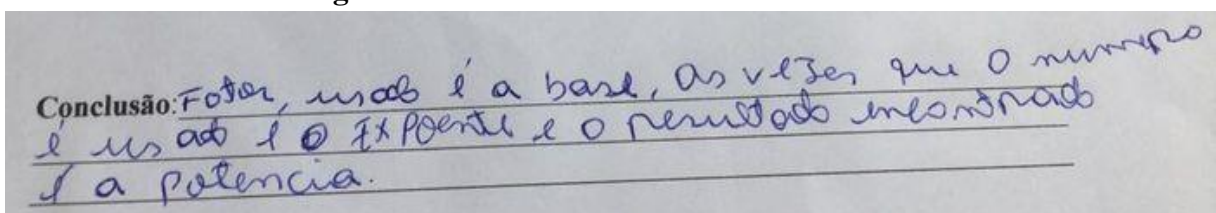 Conclusão: Fotor, usado é a base, as vezes que o numero
é usado é o Expoente e o resultado encontrado
é a potencia.